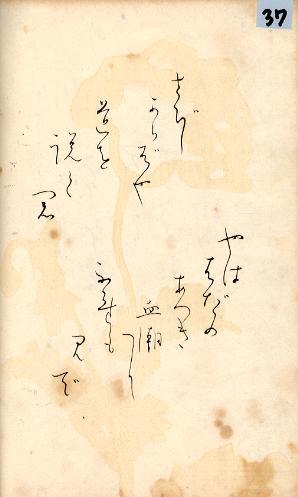 37
やは
はだの
あつき
血潮に
ふれも
見
で
さびし
からずや
道を
説く
君